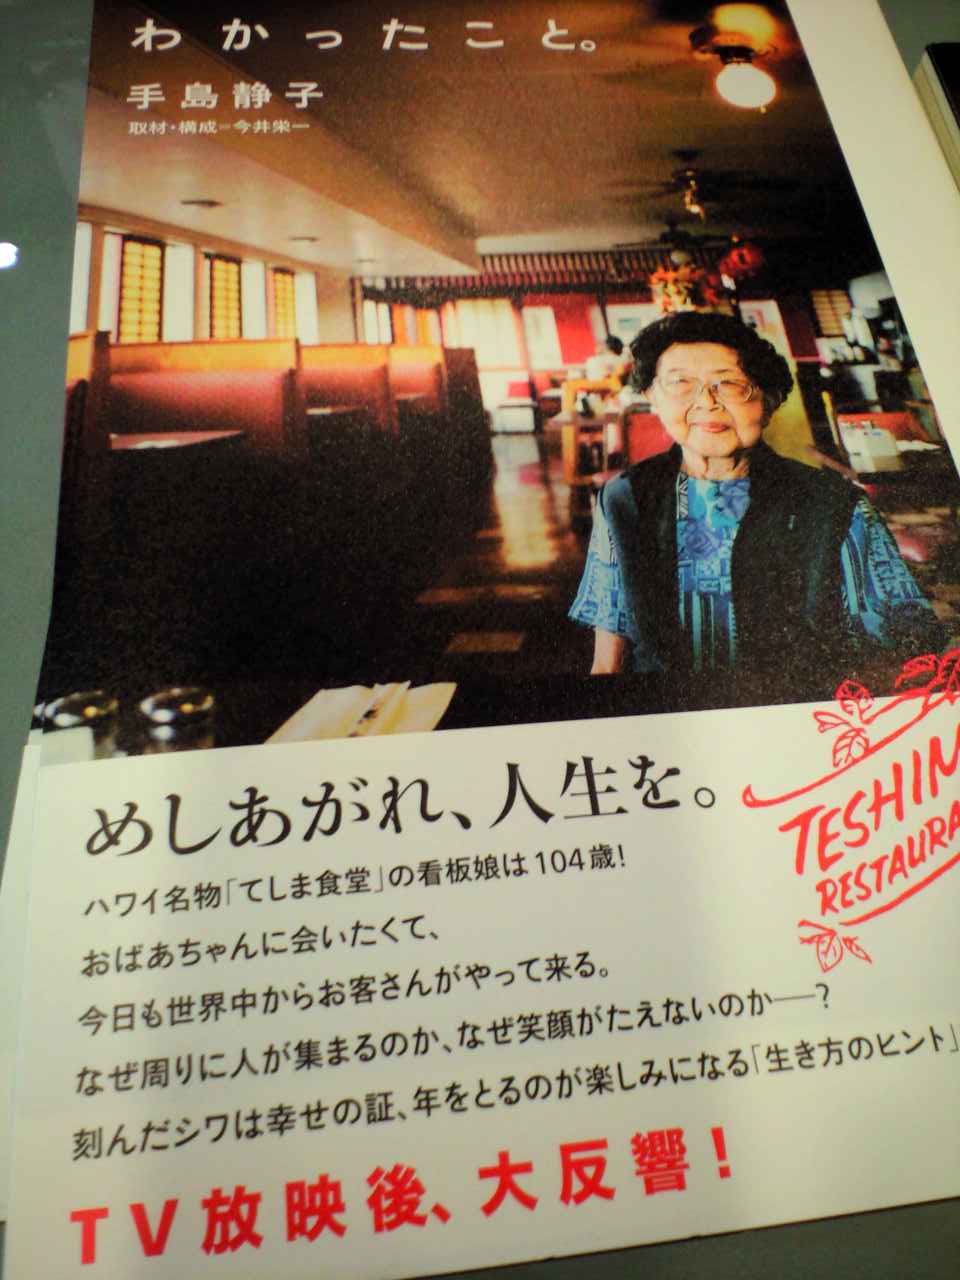 わかったこと。
手島静子
取材・構成=今井栄一
めしあがれ、人生を。
ハワイ名物「てしま食堂」の看板娘は104歳!
おばあちゃんに会いたくて、
今日も世界中からお客さんがやって来る。
なぜ周りに人が集まるのか、なぜ笑顔がたえないのか──?
刻んだシワは幸せの証、年をとるのが楽しみになる「生き方のヒント」
TV放映後、大反響!
TESHIN
RESTAURA